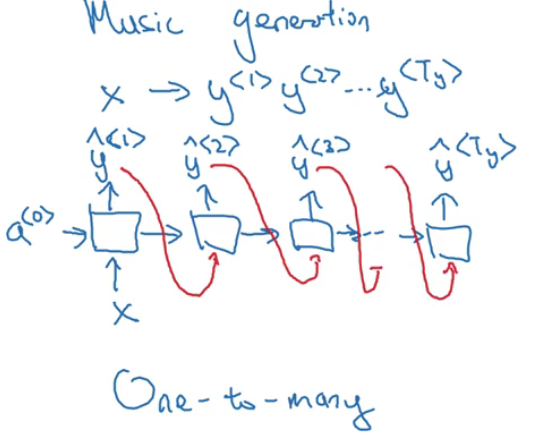 Music generation
x → y^<1> y^<2> ... y^<Ty>
ŷ^<1> ŷ^<2> ŷ^<3> ŷ^<Ty>
a^<0>
x
One-to-many